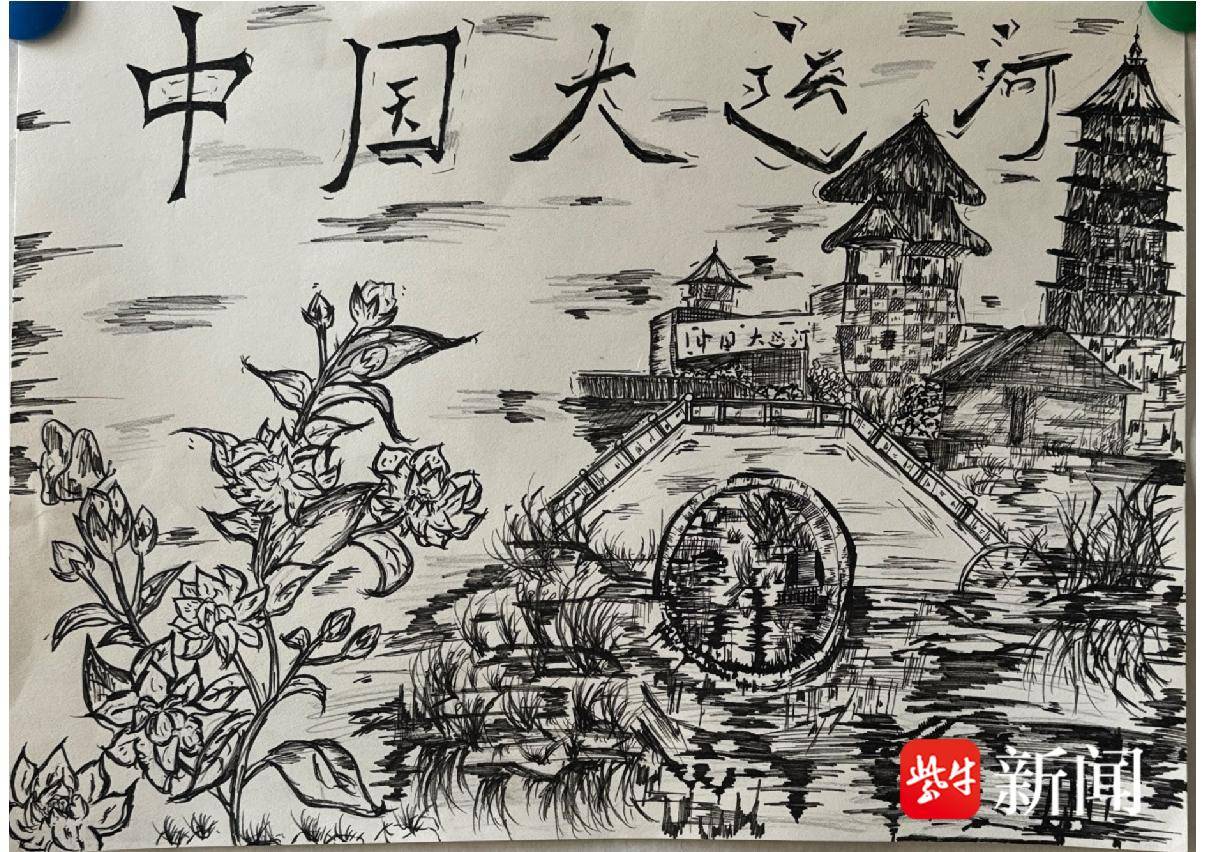 中国大运河
中国大运河
紫牛新闻